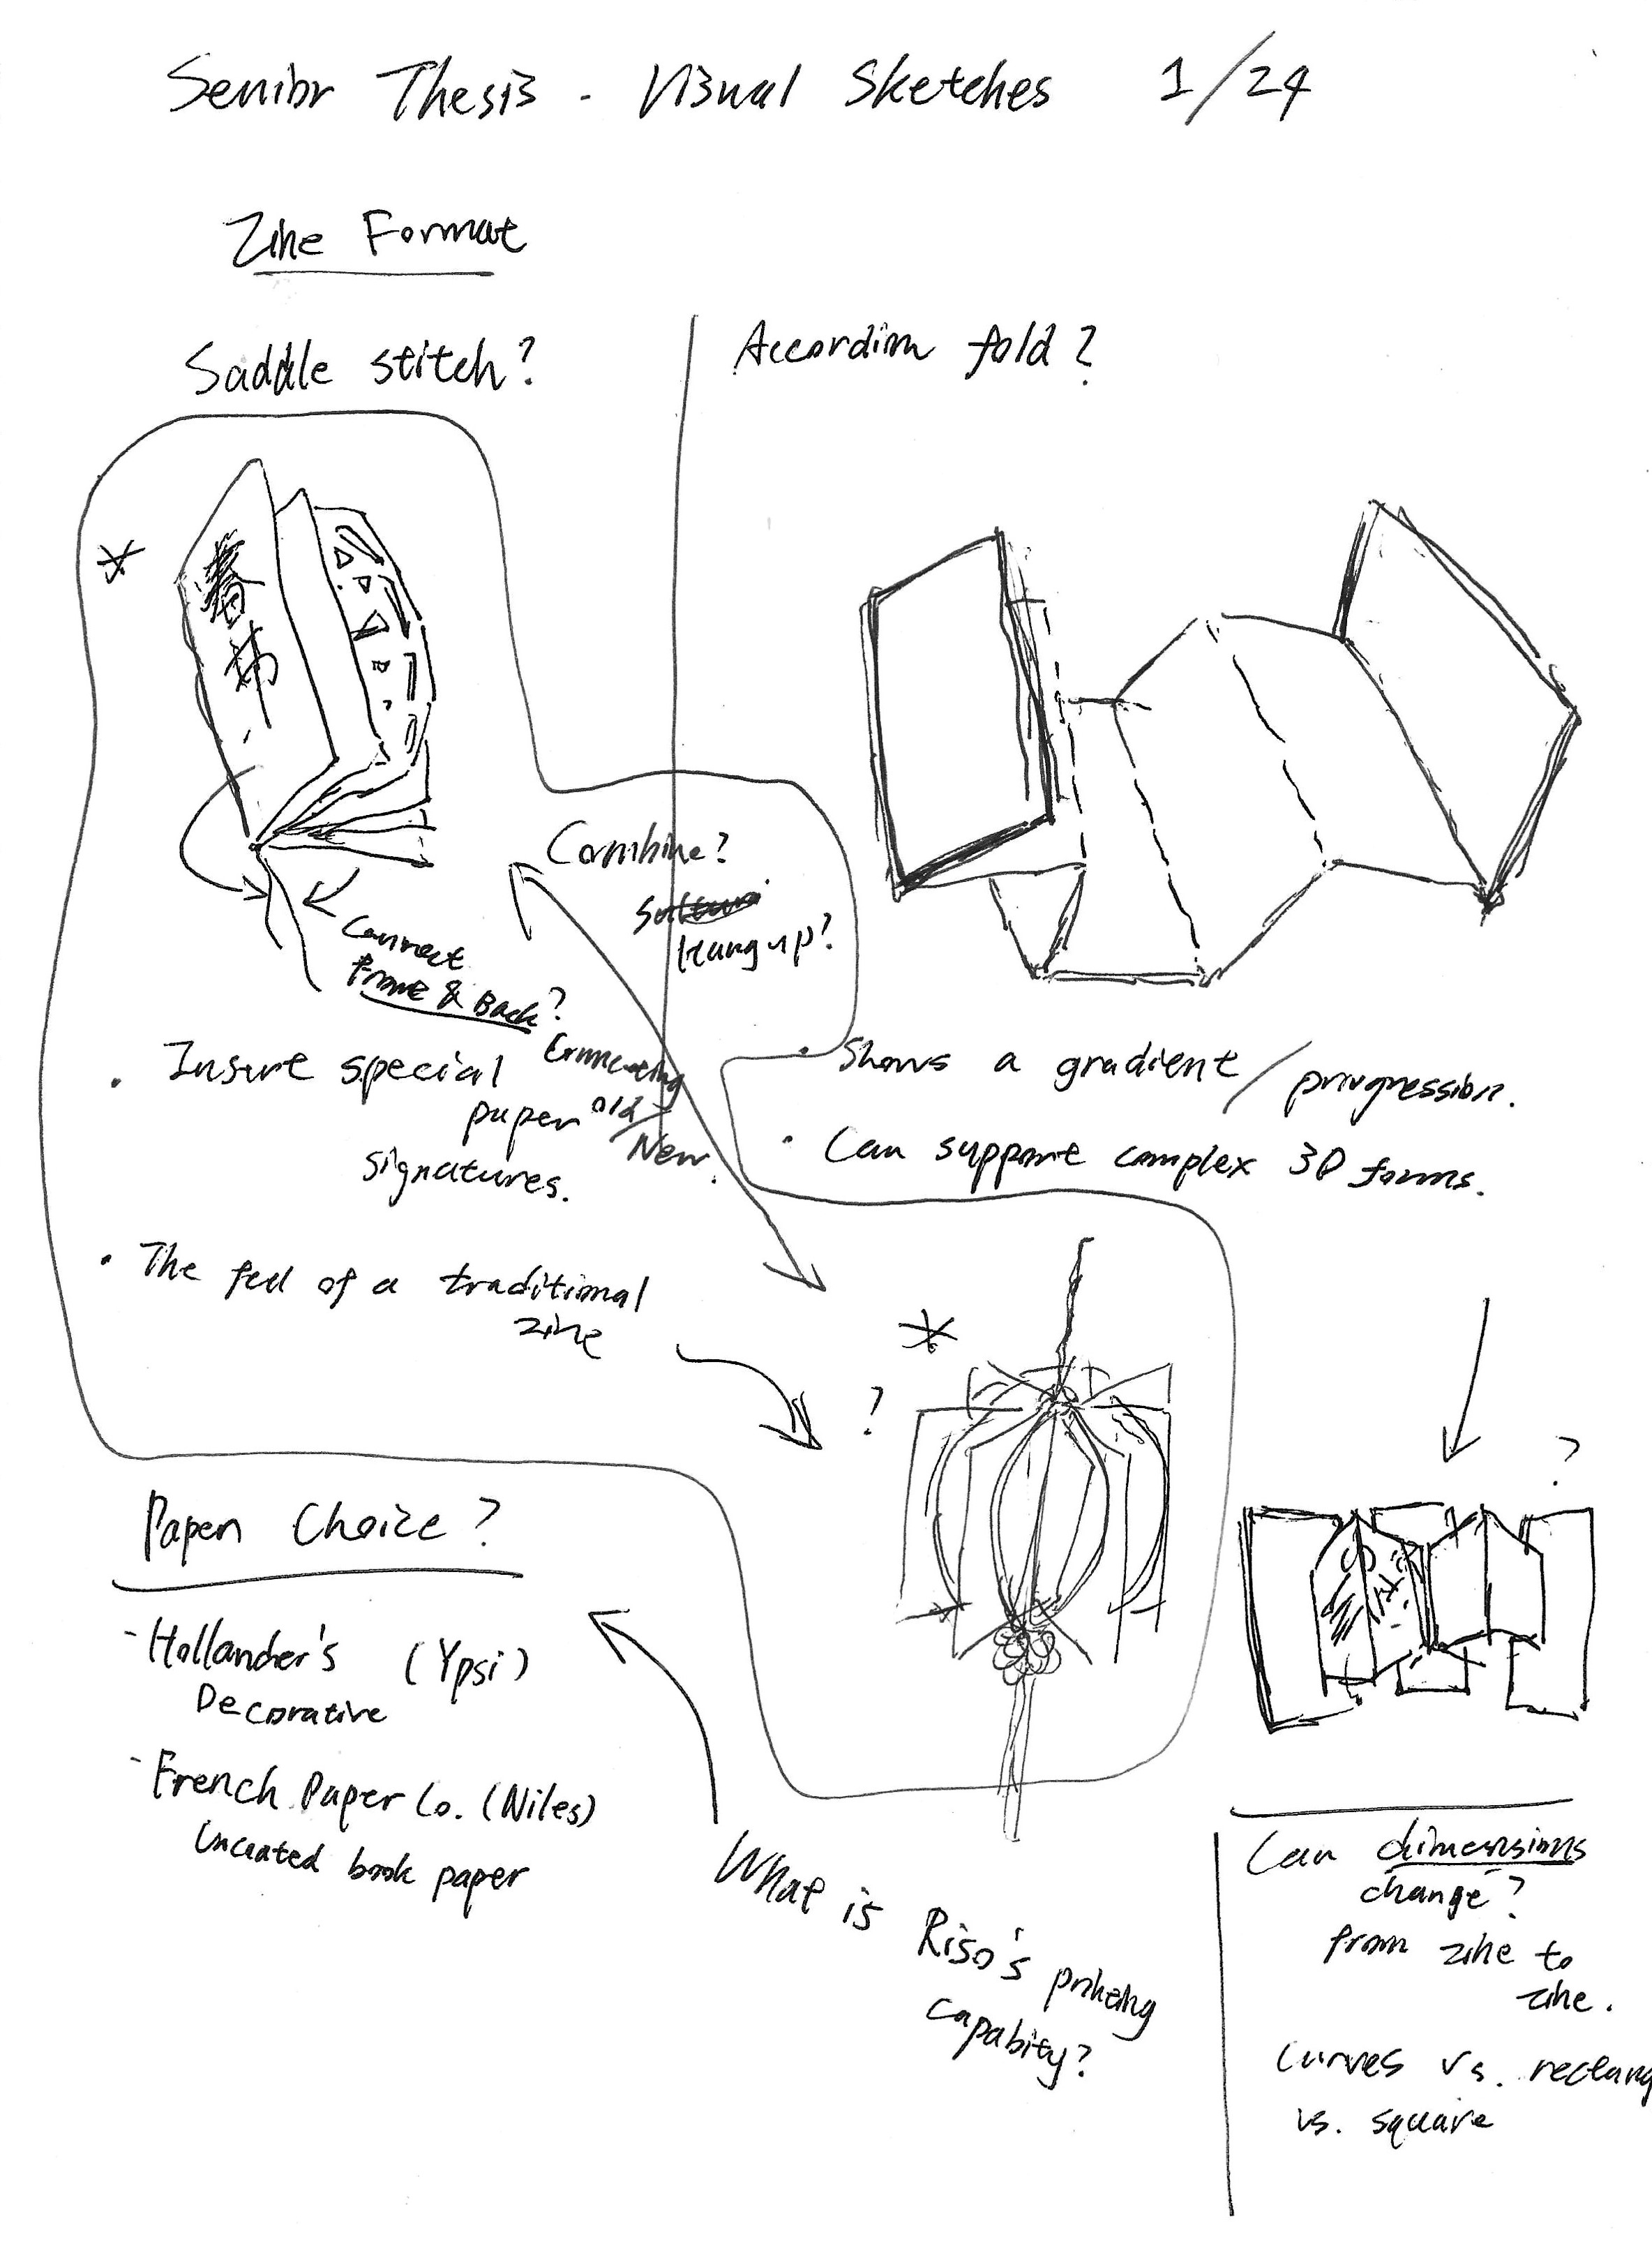 Senior Thesis - Visual Sketches 1/24
Zine Format
Saddle stitch?
春
节
Connect
Front & Back?
Combine?
Hang up?
Connecting
old/
New.
• Insert special
paper
signatures.
• The feel of a traditional
zine
Accordion fold?
• Shows a gradient/progression.
• Can support complex 3D forms.
?
?
Paper Choice?
- Hollander's (Ypsi)
Decorative
- French Paper Co. (Niles)
Uncoated book paper
What is Riso's printing
capabity?
Can dimensions
change?
from zine to
zine.
Curves vs. rectang
vs. square